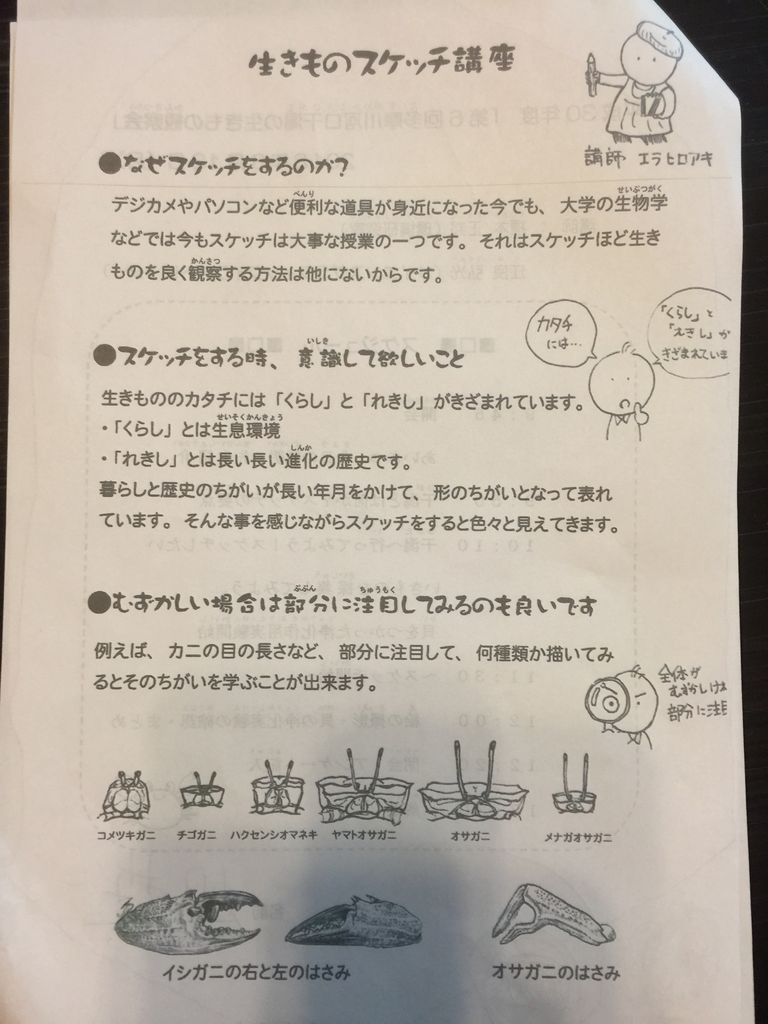 生きものスケッチ講座
講師 エラヒロアキ
●なぜスケッチをするのか?
べんり せいぶつがく
デジカメやパソコンなど便利な道具が身近になった今でも、大学の生物学
などでは今もスケッチは大事な授業の一つです。それはスケッチほど生き
かんさつ
ものを良く観察する方法は他にないからです。
カタチ
には…
「くらし」と
「れきし」が
きざまれていま
いしき
●スケッチをする時、意識して欲しいこと
生きもののカタチには「くらし」と「れきし」がきざまれています。
せいそくかんきょう
・「くらし」とは生息環境
しんか
・「れきし」とは長い長い進化の歴史です。
暮らしと歴史のちがいが長い年月をかけて、形のちがいとなって表れ
ています。そんな事を感じながらスケッチをすると色々と見えてきます。
ぶぶん ちゅうもく
●むずかしい場合は部分に注目してみるのも良いです
例えば、カニの目の長さなど、部分に注目して、何種類か描いてみ
るとそのちがいを学ぶことが出来ます。
全体が
むずかしけれ
部分に注目
コメツキガニ チゴガニ ハクセンシオマネキ ヤマトオサガニ オサガニ メナガオサガニ
イシガニの右と左のはさみ オサガニのはさみ